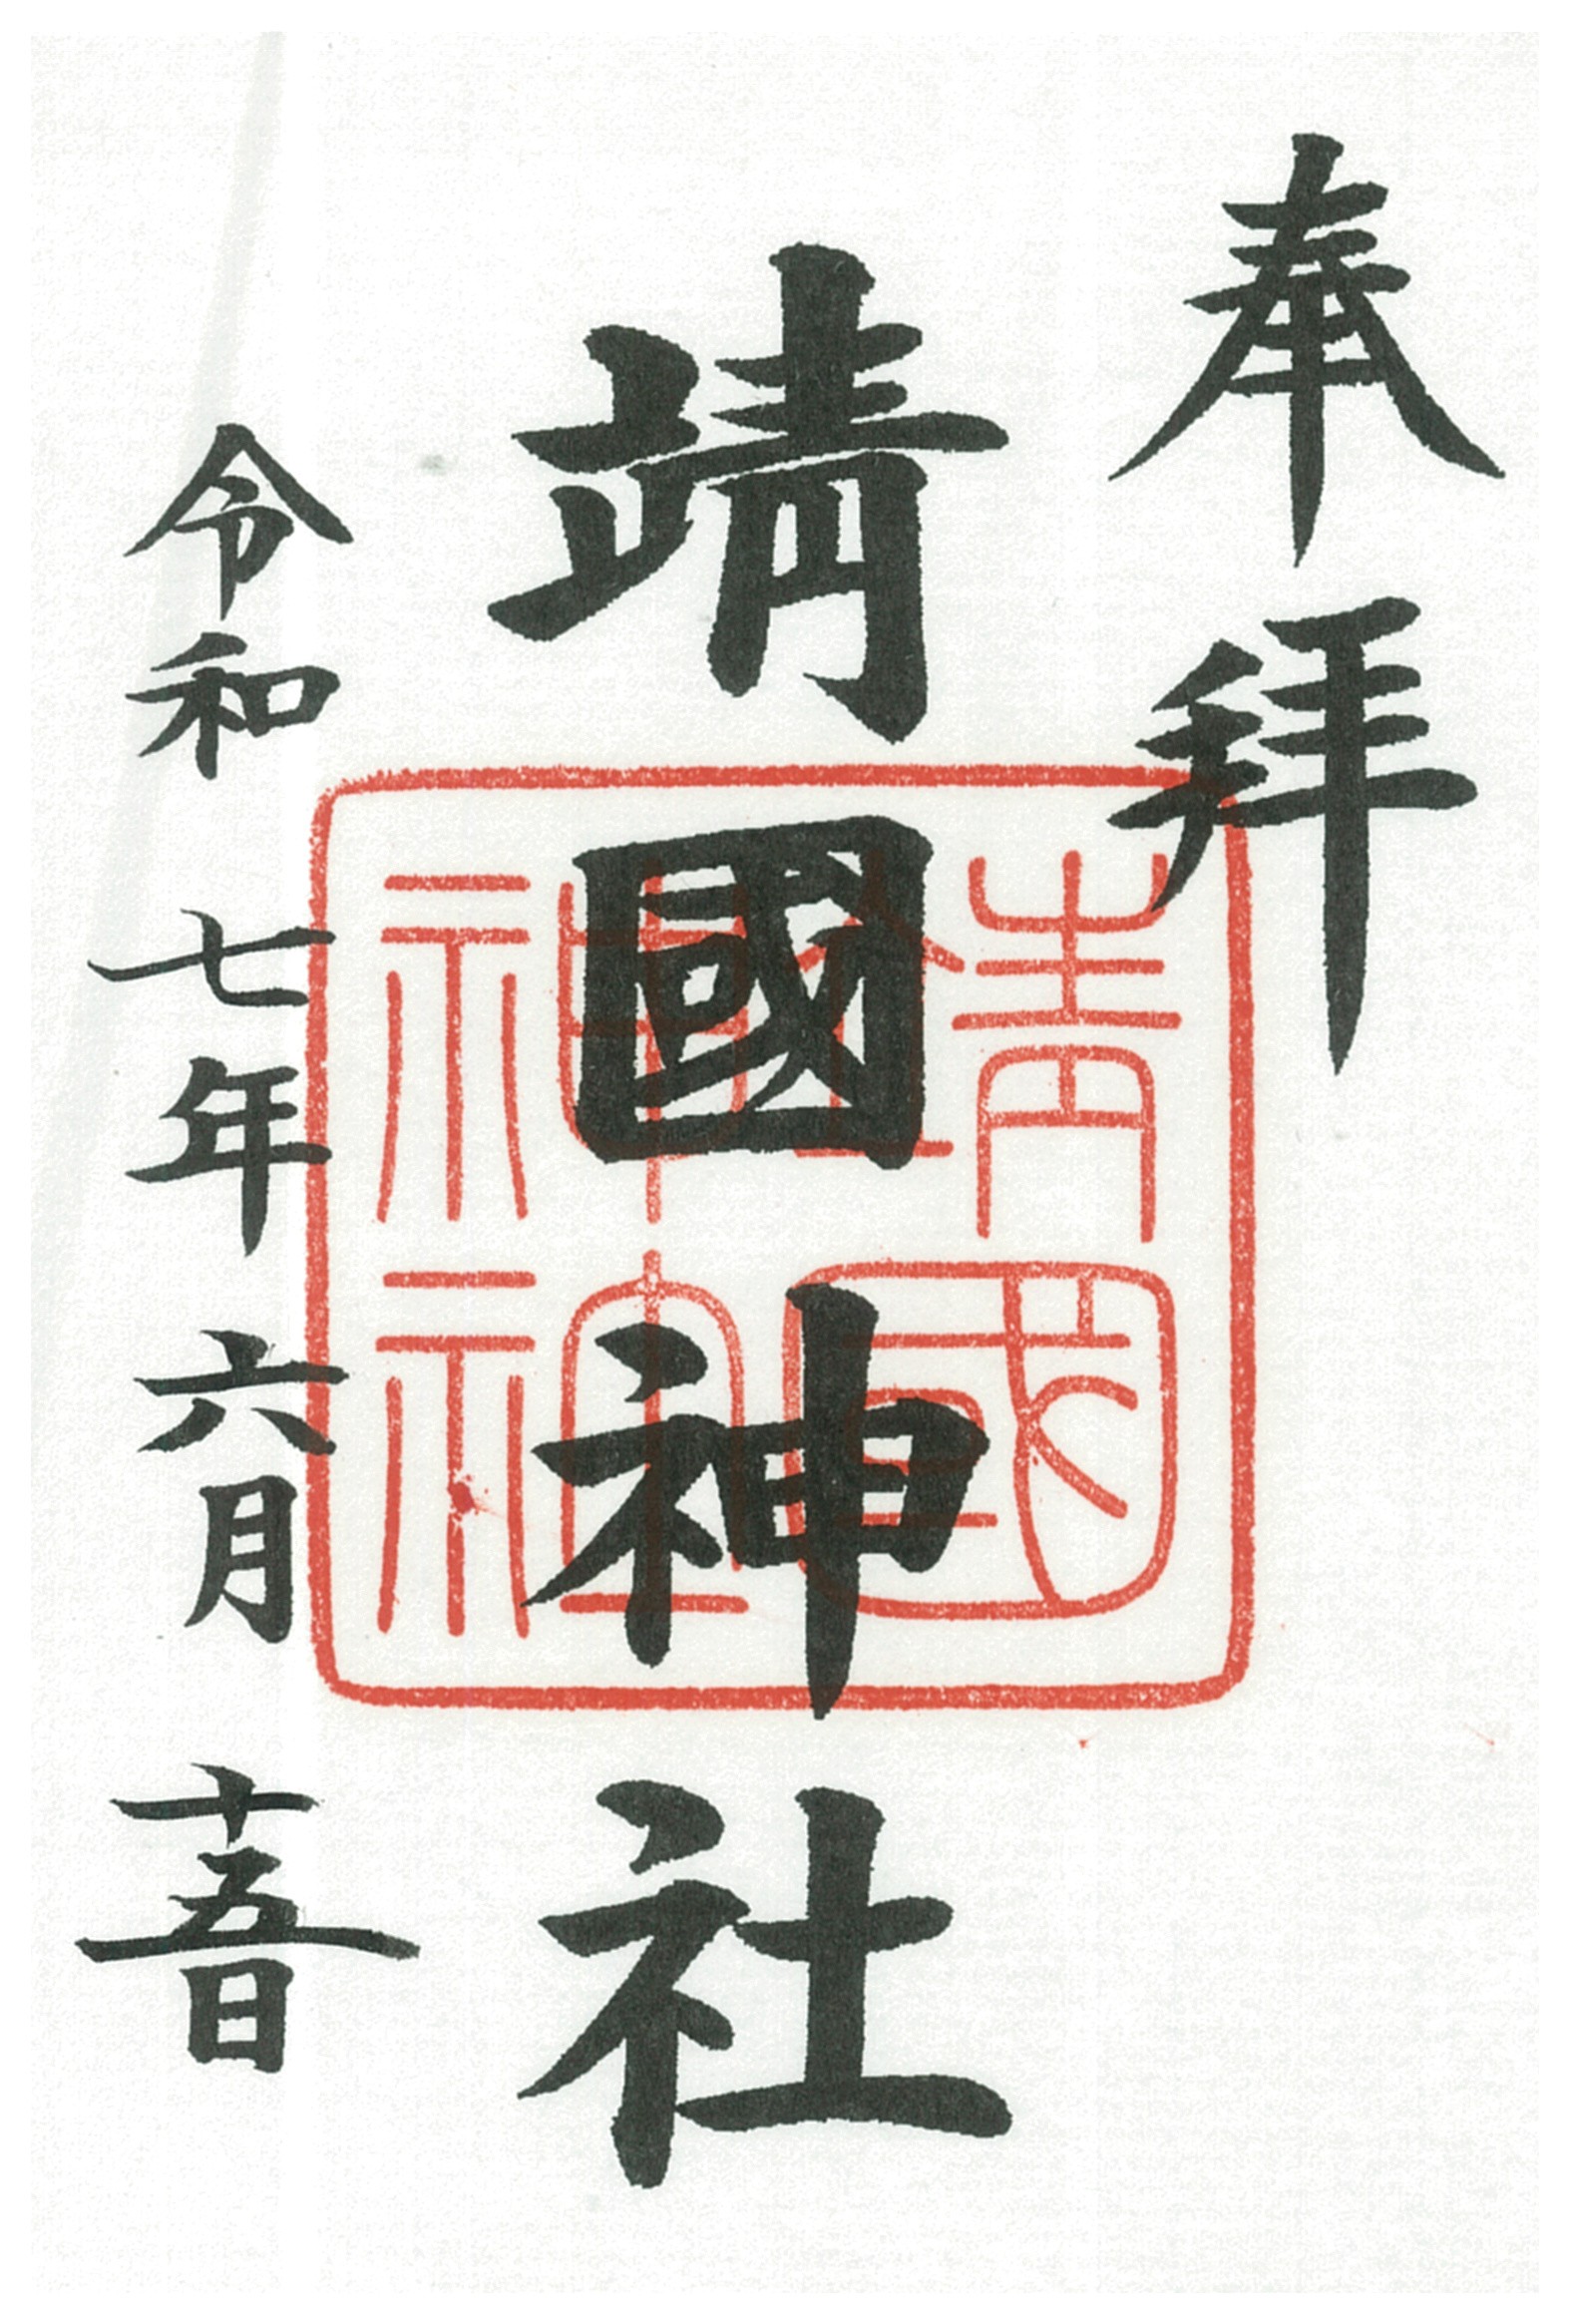 奉拝
靖國神社
令和七年六月十五日
靖國
神社